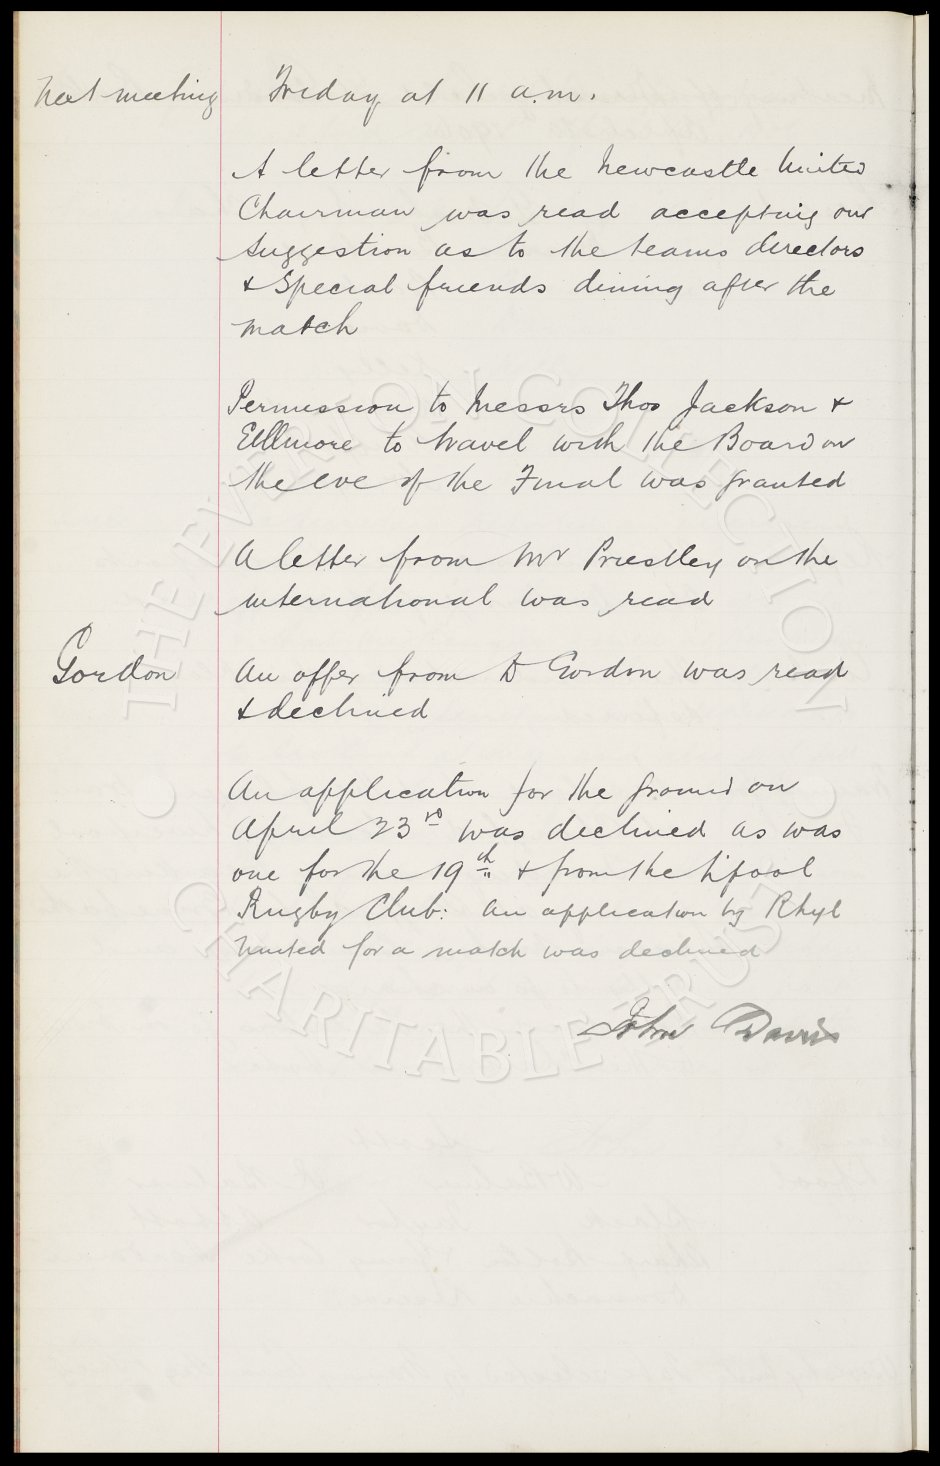 Next meeting Friday at 11 a.m.
A letter from the Newcastle United
Chairman was read accepting our
suggestion as to the teams directors
& special friends dining after the
match
Permission to Messrs Thos Jackson &
Elllmore to travel with the Board on
the eve of the Final was granted
A letter from Mr Priestley on the
international was read
Gordon An offer from D Gordon was read
& declined
An application for the ground on
April 23rd was declined as was
one for the 19th & from the L'pool
Rugby Club: an application by Rhyl
United for a match was declined
John Davis
THE EVERTON COLLECTION
CHARITABLE TRUST